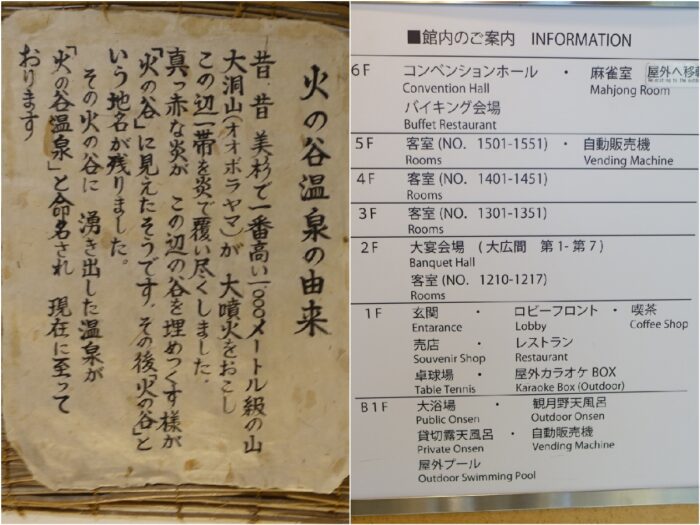 火の谷温泉の由来
昔、昔 美杉で一番高い一〇〇〇メートル級の山
大洞山(オオボラヤマ)が 大噴火をおこし
この辺一帯を炎で覆い尽くしました。
真っ赤な炎が この辺の谷を埋めつくす様が
「火の谷」に見えたそうです。その後「火の谷」と
いう地名が残りました。
その火の谷に 湧き出した温泉が
「火の谷温泉」と命名され 現在に至って
おります
■館内のご案内 INFORMATION
6F コンベンションホール ・ 麻雀室 屋外へ移動
Convention Hall Mahjong Room
バイキング会場
Buffet Restaurant
5F 客室 (NO. 1501-1551) ・ 自動販売機
Rooms Vending Machine
4F 客室 (NO. 1401-1451)
Rooms
3F 客室 (NO. 1301-1351)
Rooms
2F 大宴会場 (大広間 第1-第7)
Banquet Hall
客室 (NO. 1210-1217)
Rooms
1F 玄関 ・ ロビーフロント ・ 喫茶
Entarance Lobby Coffee Shop
売店 ・ レストラン
Souvenir Shop Restaurant
卓球場 ・ 屋外カラオケ BOX
Table Tennis Karaoke Box (Outdoor)
B1F 大浴場 ・ 観月野天風呂
Public Onsen Outdoor Onsen
貸切露天風呂 ・ 自動販売機
Private Onsen Vending Machine
屋外プール
Outdoor Swimming Pool